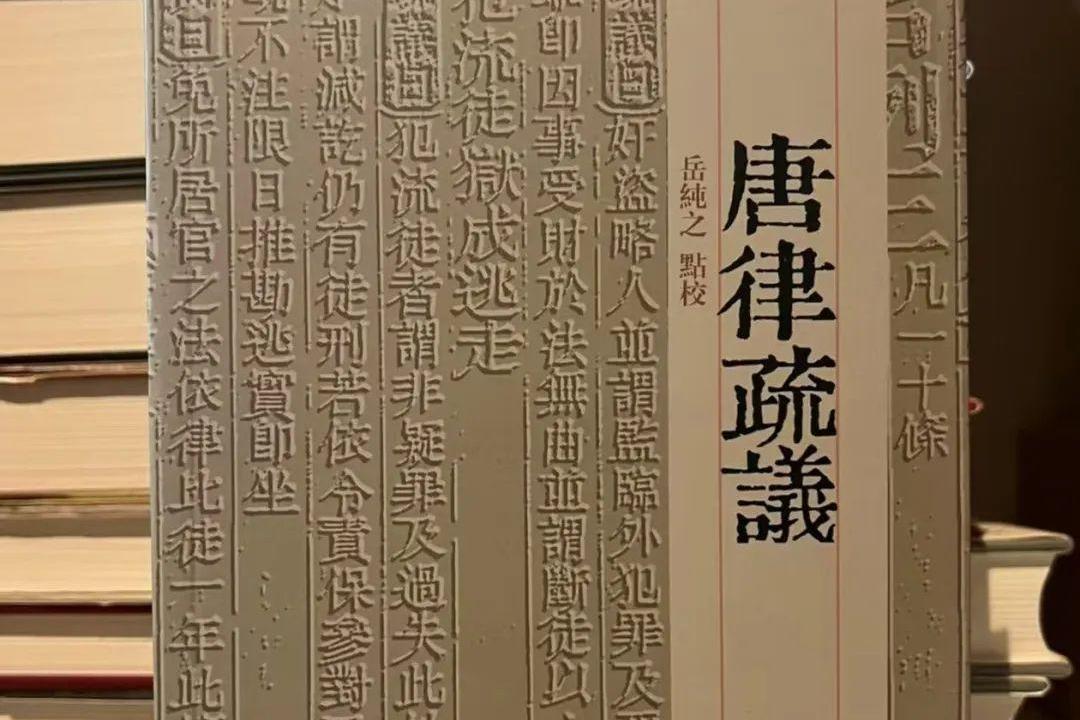 名例二凡一十條
唐律疏議
岳純之 點校
疏議曰奸盜略人並謂監臨外犯罪及
即因事受財於法無曲並謂斷徒以
犯流徒獄成逃走
疏議曰犯流徒者謂非疑罪及過失此
謂減訖仍有徒刑若依令責保參對
不注限日推勘逃實即坐
曰免所居官之法依律比徒一年此